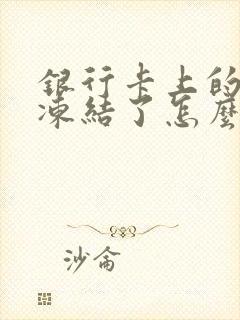 銀行卡上的
凍結了怎麼
沙侖